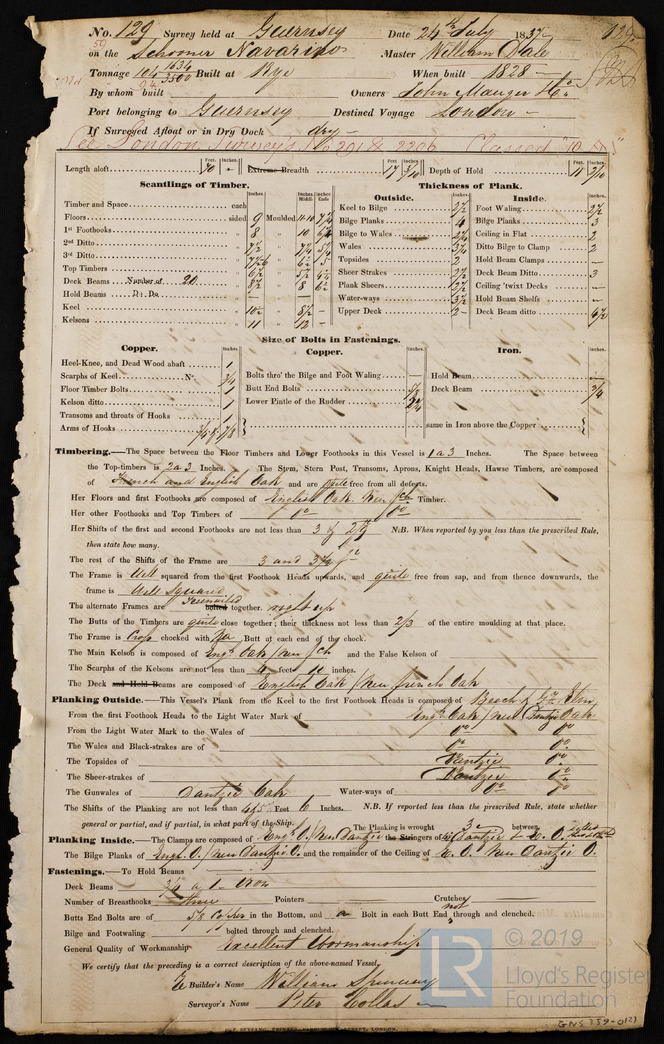 No. 129 Survey held at Guernsey Date 24th July 1837
on the Schooner Navarino Master William Dale
Tonnage 104 1634/3500 Built at Rye When built 1828
By whom built Owners John Mauger & Co
Port belonging to Guernsey Destined Voyage London
If Surveyed Afloat or in Dry Dock dry
See London Surveys No 201 & 2206 Classed "10 A1"
Feet. Inches. Feet. Inches. Feet. Inches.
Length aloft 70 Extreme Breadth 17 Depth of Hold 11
Scantlings of Timber.
Inches. Inches Middle. Inches Ends
Timber and Space each
Floors sided 9 Moulded
1st Foothooks 8 10
2nd Ditto 7½
3rd Ditto
Top Timbers
Deck Beams Number of 20 8½ 8
Hold Beams Do Do
Keel
Kelsons 11 12
Thickness of Plank.
Outside.
Inches
Keel to Bilge 2½
Bilge Planks 4
Bilge to Wales
Wales
Topsides 2
Sheer Strakes 2½
Plank Sheers 2½
Water-ways 3½
Upper Deck 2
Inside.
Inches
Foot Waling 2½
Bilge Planks 3
Ceiling in Flat 2
Ditto Bilge to Clamp 2
Hold Beam Clamps
Deck Beam Ditto 3
Ceiling 'twixt Decks
Hold Beam Shelfs
Deck Beam ditto
Size of Bolts in Fastenings.
Copper. Inches.
Heel-Knee, and Dead Wood abaft 1
Scarphs of Keel No. 3/4
Floor Timber Bolts 1
Kelson ditto 1
Transoms and throats of Hooks 1
Arms of Hooks 3/4 & 7/8
Copper. Inches.
Bolts thro' the Bilge and Foot Waling
Butt End Bolts 5/8
Lower Pintle of the Rudder
Iron. Inches.
Hold Beam
Deck Beam 3/4
same in Iron above the Copper
Timbering.—The Space between the Floor Timbers and Lower Foothooks in this Vessel is 1 a 3 Inches. The Space between
the Top-timbers is 2 a 3 Inches. The Stem, Stern Post, Transoms, Aprons, Knight Heads, Hawse Timbers, are composed
of French and English Oak and are quite free from all defects.
Her Floors and first Foothooks are composed of English Oak New fch Timber.
Her other Foothooks and Top Timbers of Do Do
Her Shifts of the first and second Foothooks are not less than 3 N.B. When reported by you less than the prescribed Rule,
then state how many.
The rest of the Shifts of the Frame are 3 and 3½
The Frame is Well squared from the first Foothook Heads upwards, and quite free from sap, and from thence downwards, the
frame is Well Squared
The alternate Frames are Treenailed bolted together. right up
The Butts of the Timbers are quite close together; their thickness not less than 2/3 of the entire moulding at that place.
The Frame is Cross chocked with Butt at each end of the chock.
The Main Kelson is composed of Engh Oak New fch and the False Kelson of
The Scarphs of the Kelsons are not less than 4 feet 10 inches.
The Deck and Hold Beams are composed of English Oak New french Oak
Planking Outside.—This Vessel's Plank from the Keel to the first Foothook Heads is composed of Beech & Elm
From the first Foothook Heads to the Light Water Mark of Engh Oak New Dantzic Oak
From the Light Water Mark to the Wales of Do Do
The Wales and Black-strakes are of Do Do
The Topsides of Dantzic Do
The Sheer-strakes of Dantzic Do
The Gunwales of Dantzic Oak Water-ways of Do Do
The Shifts of the Planking are not less than 4 & 5 Feet 6 Inches. N.B. If reported less than the prescribed Rule, state whether
general or partial, and if partial, in what part of the Ship. The Planking is wrought 3 between
Planking Inside.—The Clamps are composed of Engh O. New Dantzic the Stringers of Dantzic
The Bilge Planks of Engh O. New Dantzic O. and the remainder of the Ceiling of E. O. New Dantzic O.
Fastenings.—To Hold Beams
Deck Beams 3/4 a 1 Iron
Number of Breasthooks three Pointers Crutches
Butts End Bolts are of 5/8 Copper in the Bottom, and a Bolt in each Butt End, not through and clenched.
Bilge and Footwaling bolted through and clenched.
General Quality of Workmanship Excellent Wormanship
We certify that the preceding is a correct description of the above-named Vessel,
Builder's Name William Spenney
Surveyor's Name Peter Collas
LR © 2019
Lloyd's Register
Foundation
GNS 359-0121